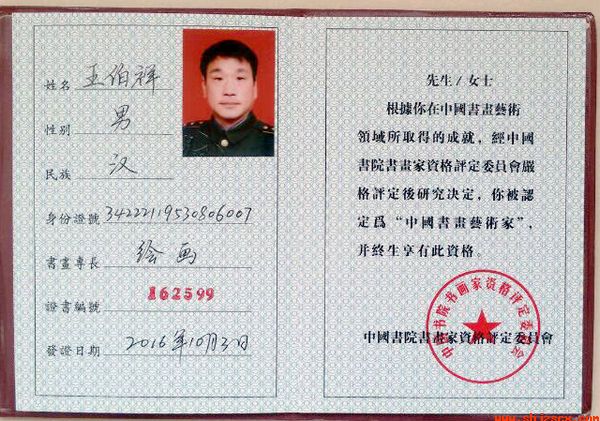 姓名 王伯祥
性别 男
民族 汉
身份證號 342221195308060 07
書畫專長 绘画
證書編號 162599
發證日期 2016年10月3日
先生/女士
根據你在中國書畫藝術
領域所取得的成就，經中國
書院書畫家資格評定委員會嚴
格評定後研究决定，你被認
定爲“中國書畫藝術家”，
并終生享有此資格。
中國書院書畫家資格評定委員會
中国书院书画家资格评定委员会